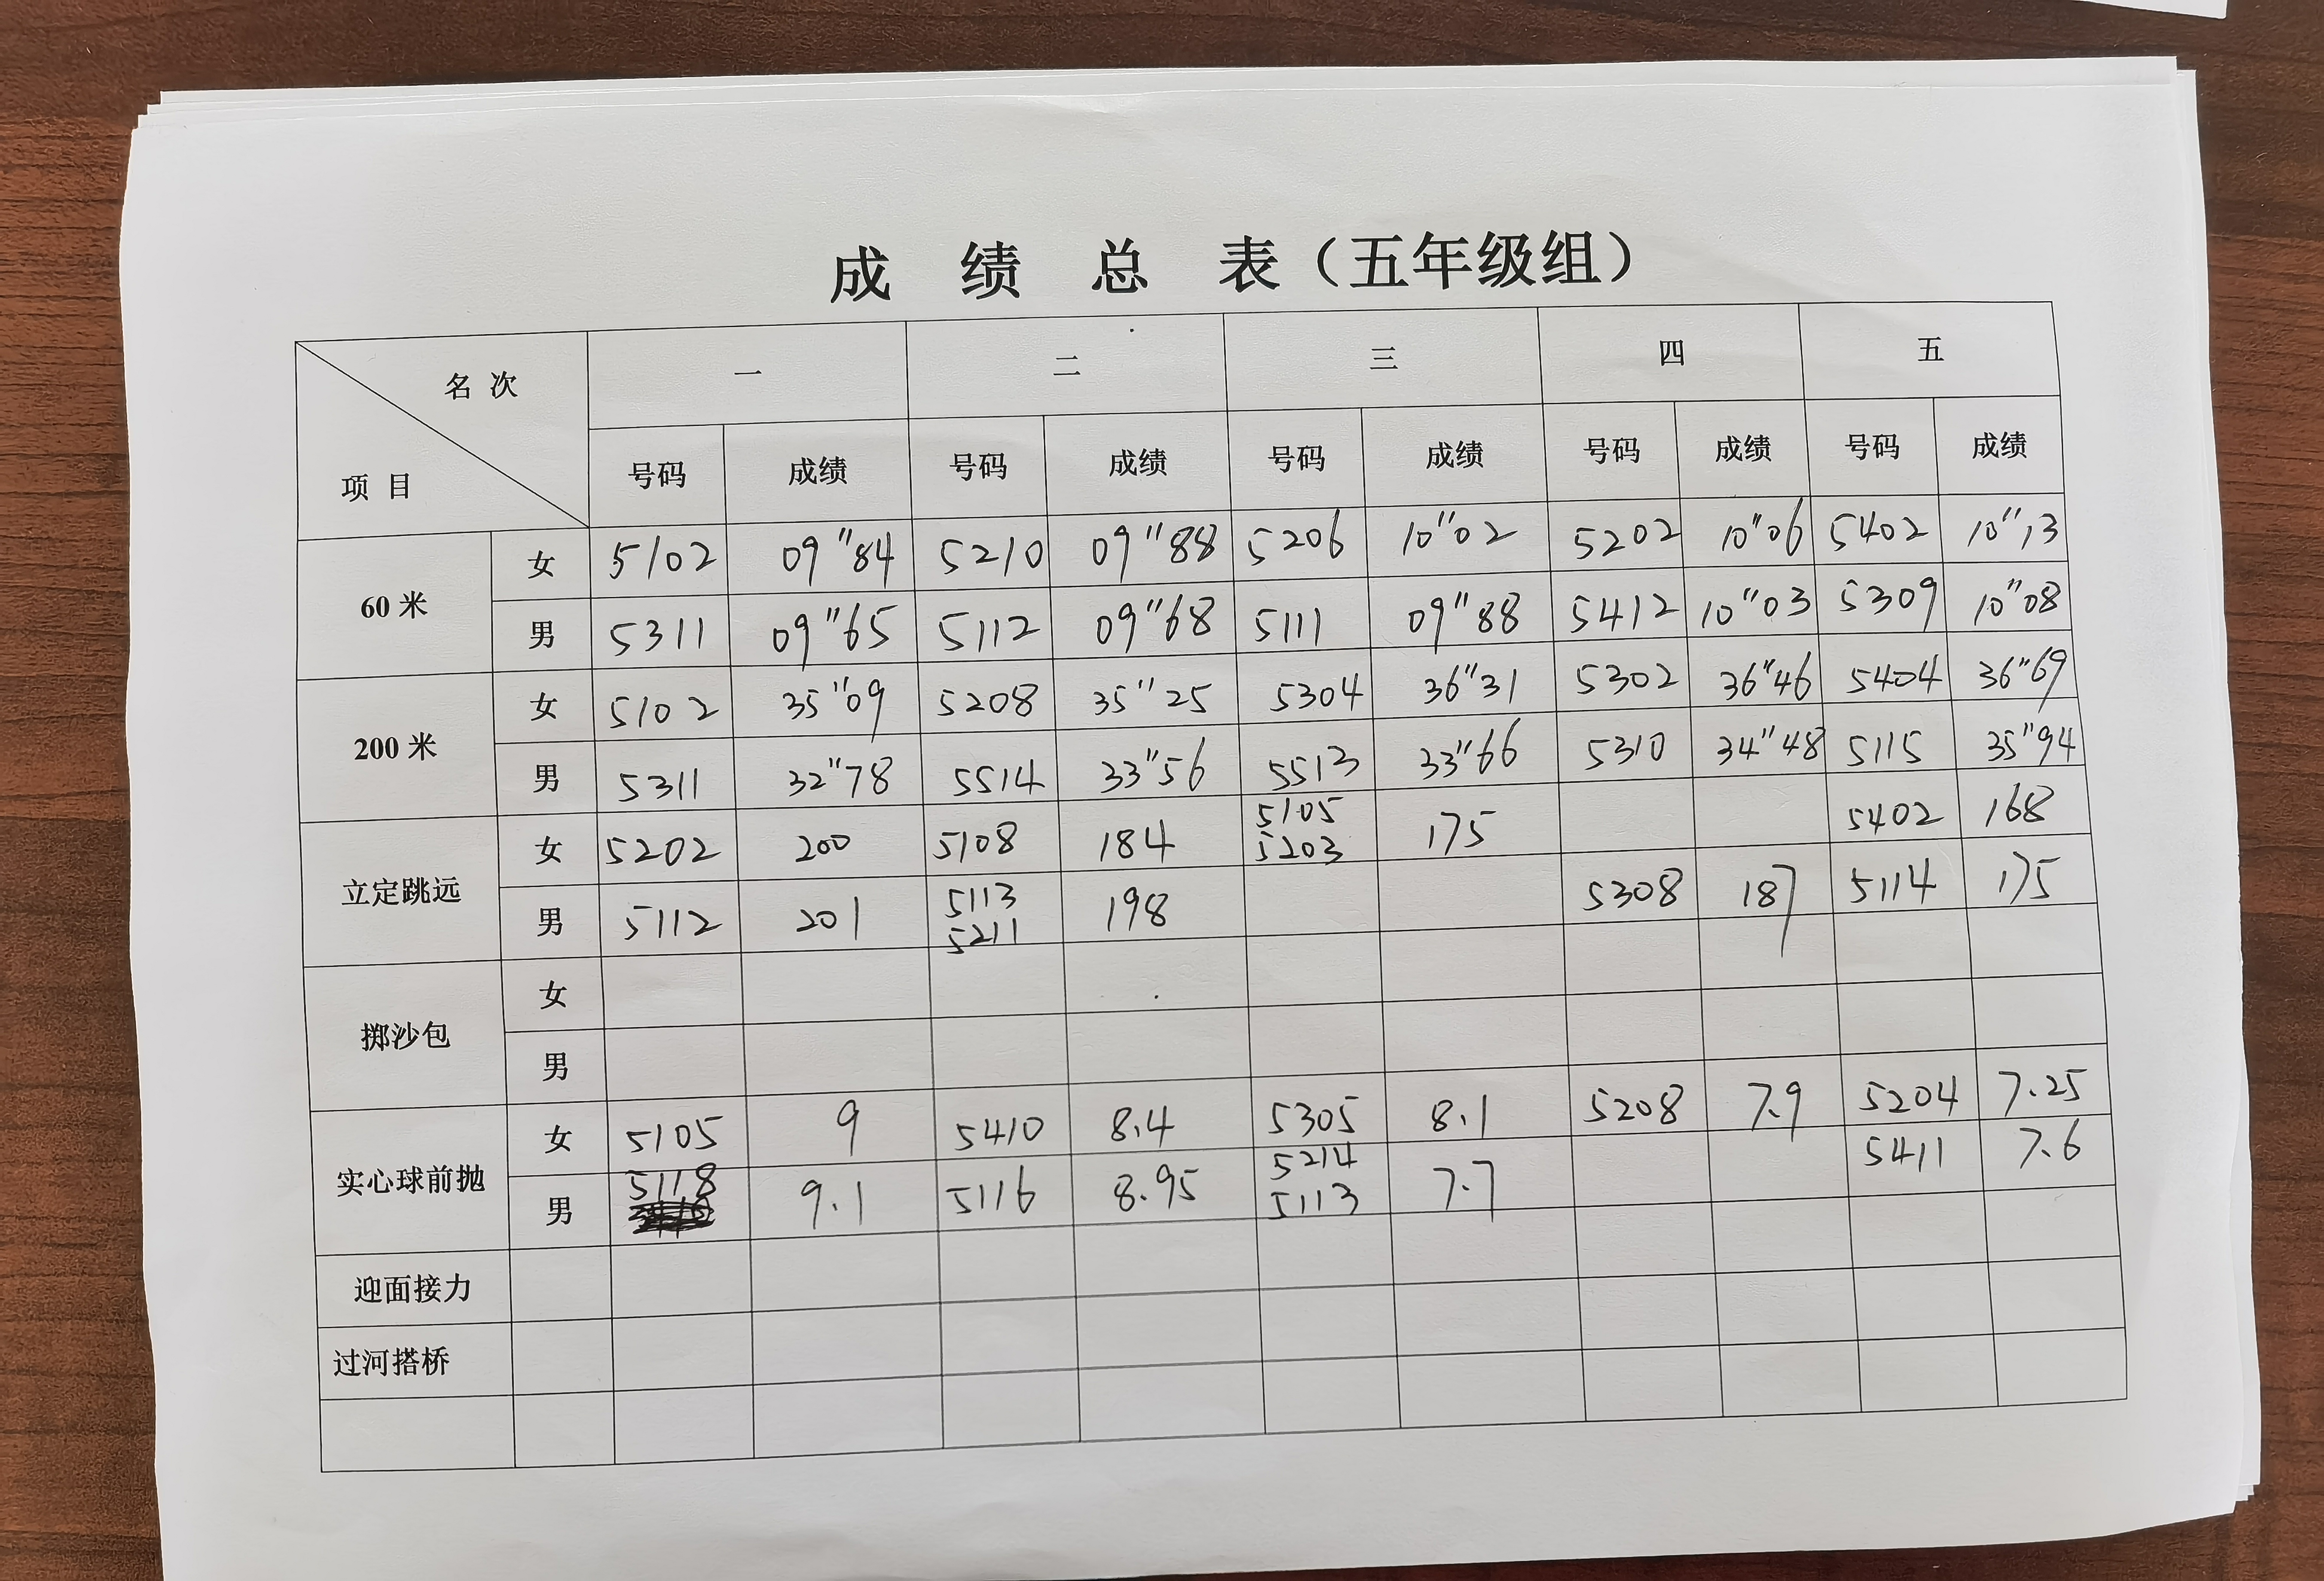 成 绩 总 表（五年级组）
名 次 一 二 三 四 五
项 目 号码 成绩 号码 成绩 号码 成绩 号码 成绩 号码 成绩
60 米 女 5102 09"84 5210 09"88 5206 10"02 5202 10"06 5402 10"13
男 5311 09"65 5112 09"68 5111 09"88 5412 10"03 5309 10"08
200 米 女 5102 35"09 5208 35"25 5304 36"31 5302 36"46 5404 36"69
男 5311 32"78 5514 33"56 5513 33"66 5310 34"48 5115 35"94
立定跳远 女 5202 200 5108 184 5105 5203 175 5402 168
男 5112 201 5113 5211 198 5308 187 5114 175
掷沙包 女
男
实心球前抛 女 5105 9 5410 8.4 5305 8.1 5208 7.9 5204 7.25
男 5118 9.1 5116 8.95 5214 5113 7.7 5411 7.6
迎面接力
过河搭桥